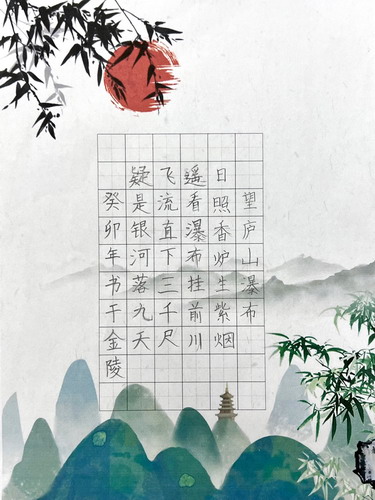 望庐山瀑布
日照香炉生紫烟
遥看瀑布挂前川
飞流直下三千尺
疑是银河落九天
癸卯年书于金陵